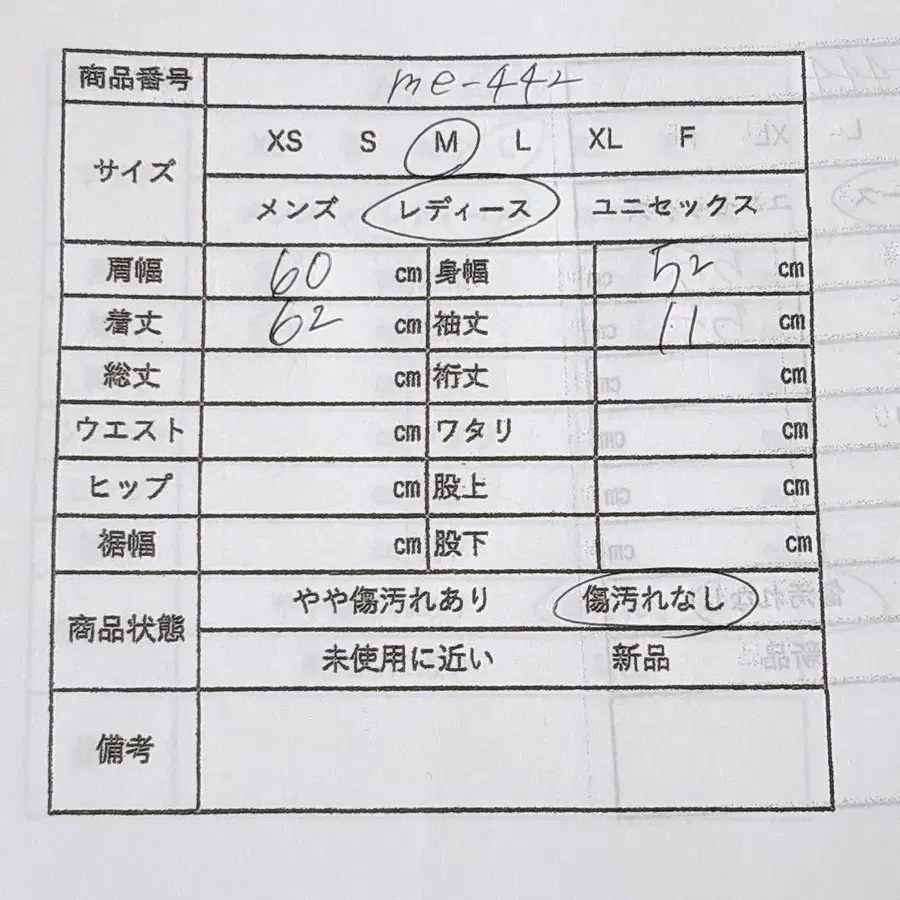 商品番号 me-442
サイズ XS S M L XL F
メンズ レディース ユニセックス
肩幅 60 cm 身幅 52 cm
着丈 62 cm 袖丈 11 cm
総丈 cm 裄丈 cm
ウエスト cm ワタリ cm
ヒップ cm 股上 cm
裾幅 cm 股下 cm
商品状態 やや傷汚れあり 傷汚れなし
未使用に近い 新品
備考